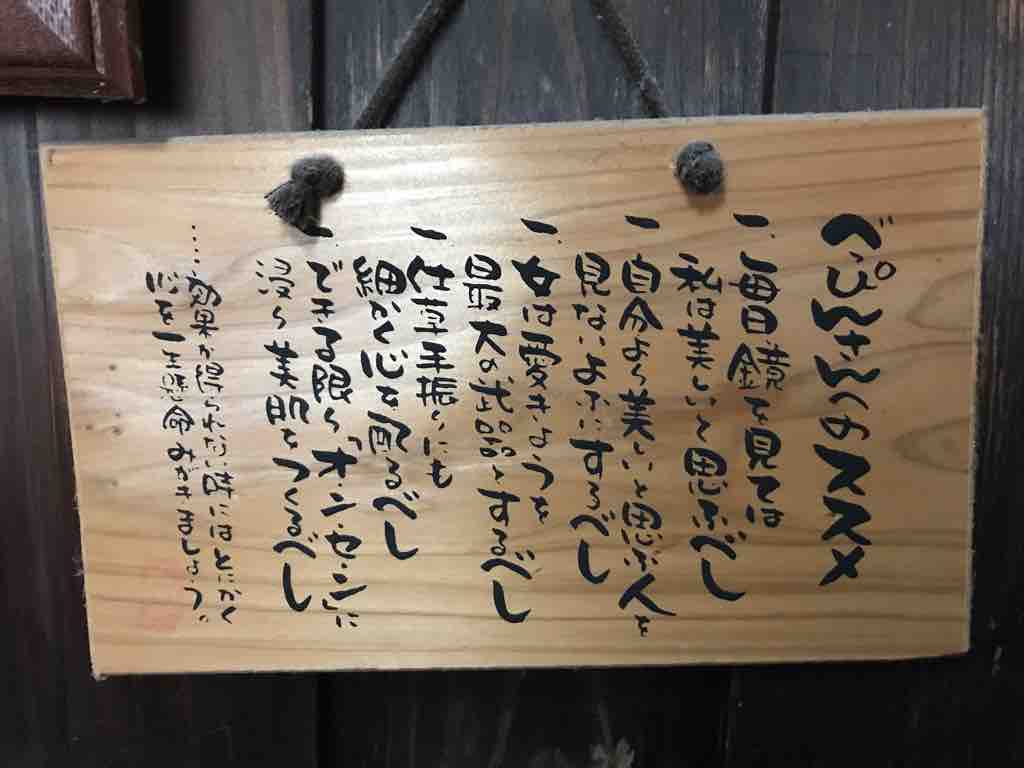 べっぴんさんのススメ
一、毎日鏡を見ては
私は美しいと思ふべし
一、自分より美しいと思ふ人を
見ないようにするべし
一、女は愛すろう
最大の化粧品とするべし
一、仕草手振りにも
細く心を配るべし
一、できる限り「オンセン」に
浸り美肌をつくるべし
……効果が得られない時にはとにかく
心を一生懸命みがきましょう。